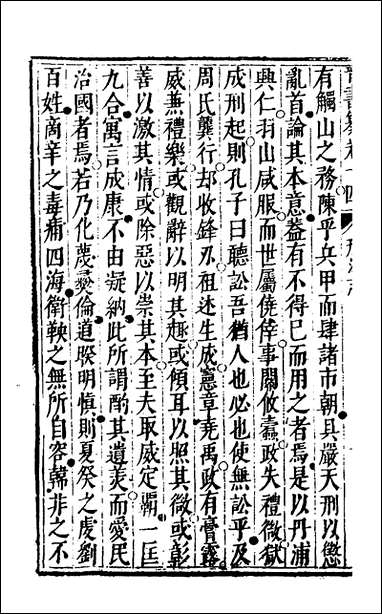 有觸山之務陳乎兵甲而肆諸市朝具嚴天刑以懲
亂首論其本意蓋有不得已而用之者焉是以丹浦
興仁羽山咸服而世屬僥倖事關攸蠹政失禮微獄
成刑起則孔子曰聽訟吾猶人也必也使無訟乎及
周氏龔行却收鋒刃祖述生成憲章堯禹政有膏露
威兼禮樂或觀辭以明其趣或傾耳以照其微或彰
善以激其情或除惡以崇其本至夫取威定霸一匡
九合寓言成康不由凝納此所謂酌其遺美而愛民
治國者焉若乃化蔑彝倫道睽明慎則夏癸之虔劉
百姓商辛之毒痡四海衛鞅之無所自容韓非之不